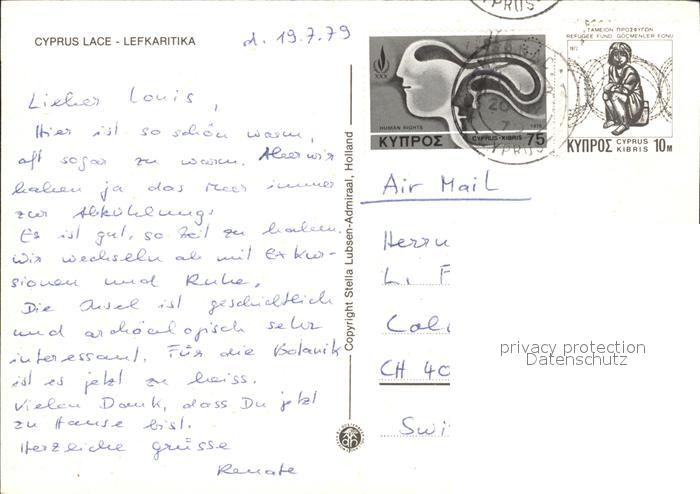 CYPRUS LACE - LEFKARITIKA
d. 19.7.79
Lieber Louis,
Hier ist so schön warm,
oft sogar zu warm. Aber wir
haben ja das Meer immer
zur Abkühlung.
Es ist gut, so Zeit zu haben.
Wir wechseln ab mit Exkur-
sionen und Ruhe.
Die Insel ist geschichtlich
und archäologisch sehr
interessant. Für die Botanik
ist es jetzt zu heiss.
Vielen Dank, dass Du jetzt
zu Hause bist.
Herzliche Grüsse
Renate
Copyright Stella Lubsen-Admiraal, Holland
XXX
HUMAN RIGHTS
1978
ΚΥΠΡΟΣ CYPRUS-KIBRIS 75
ΤΑΜΕΙΟΝ ΠΡΟΣΦΥΓΩΝ
REFUGEE FUND GÖÇMENLER FONU
ΚΥΠΡΟΣ CYPRUS KIBRIS 10M
CYPRUS
Air Mail
Herrn
L. F
CH 40
Swi
privacy protection
Datenschutz